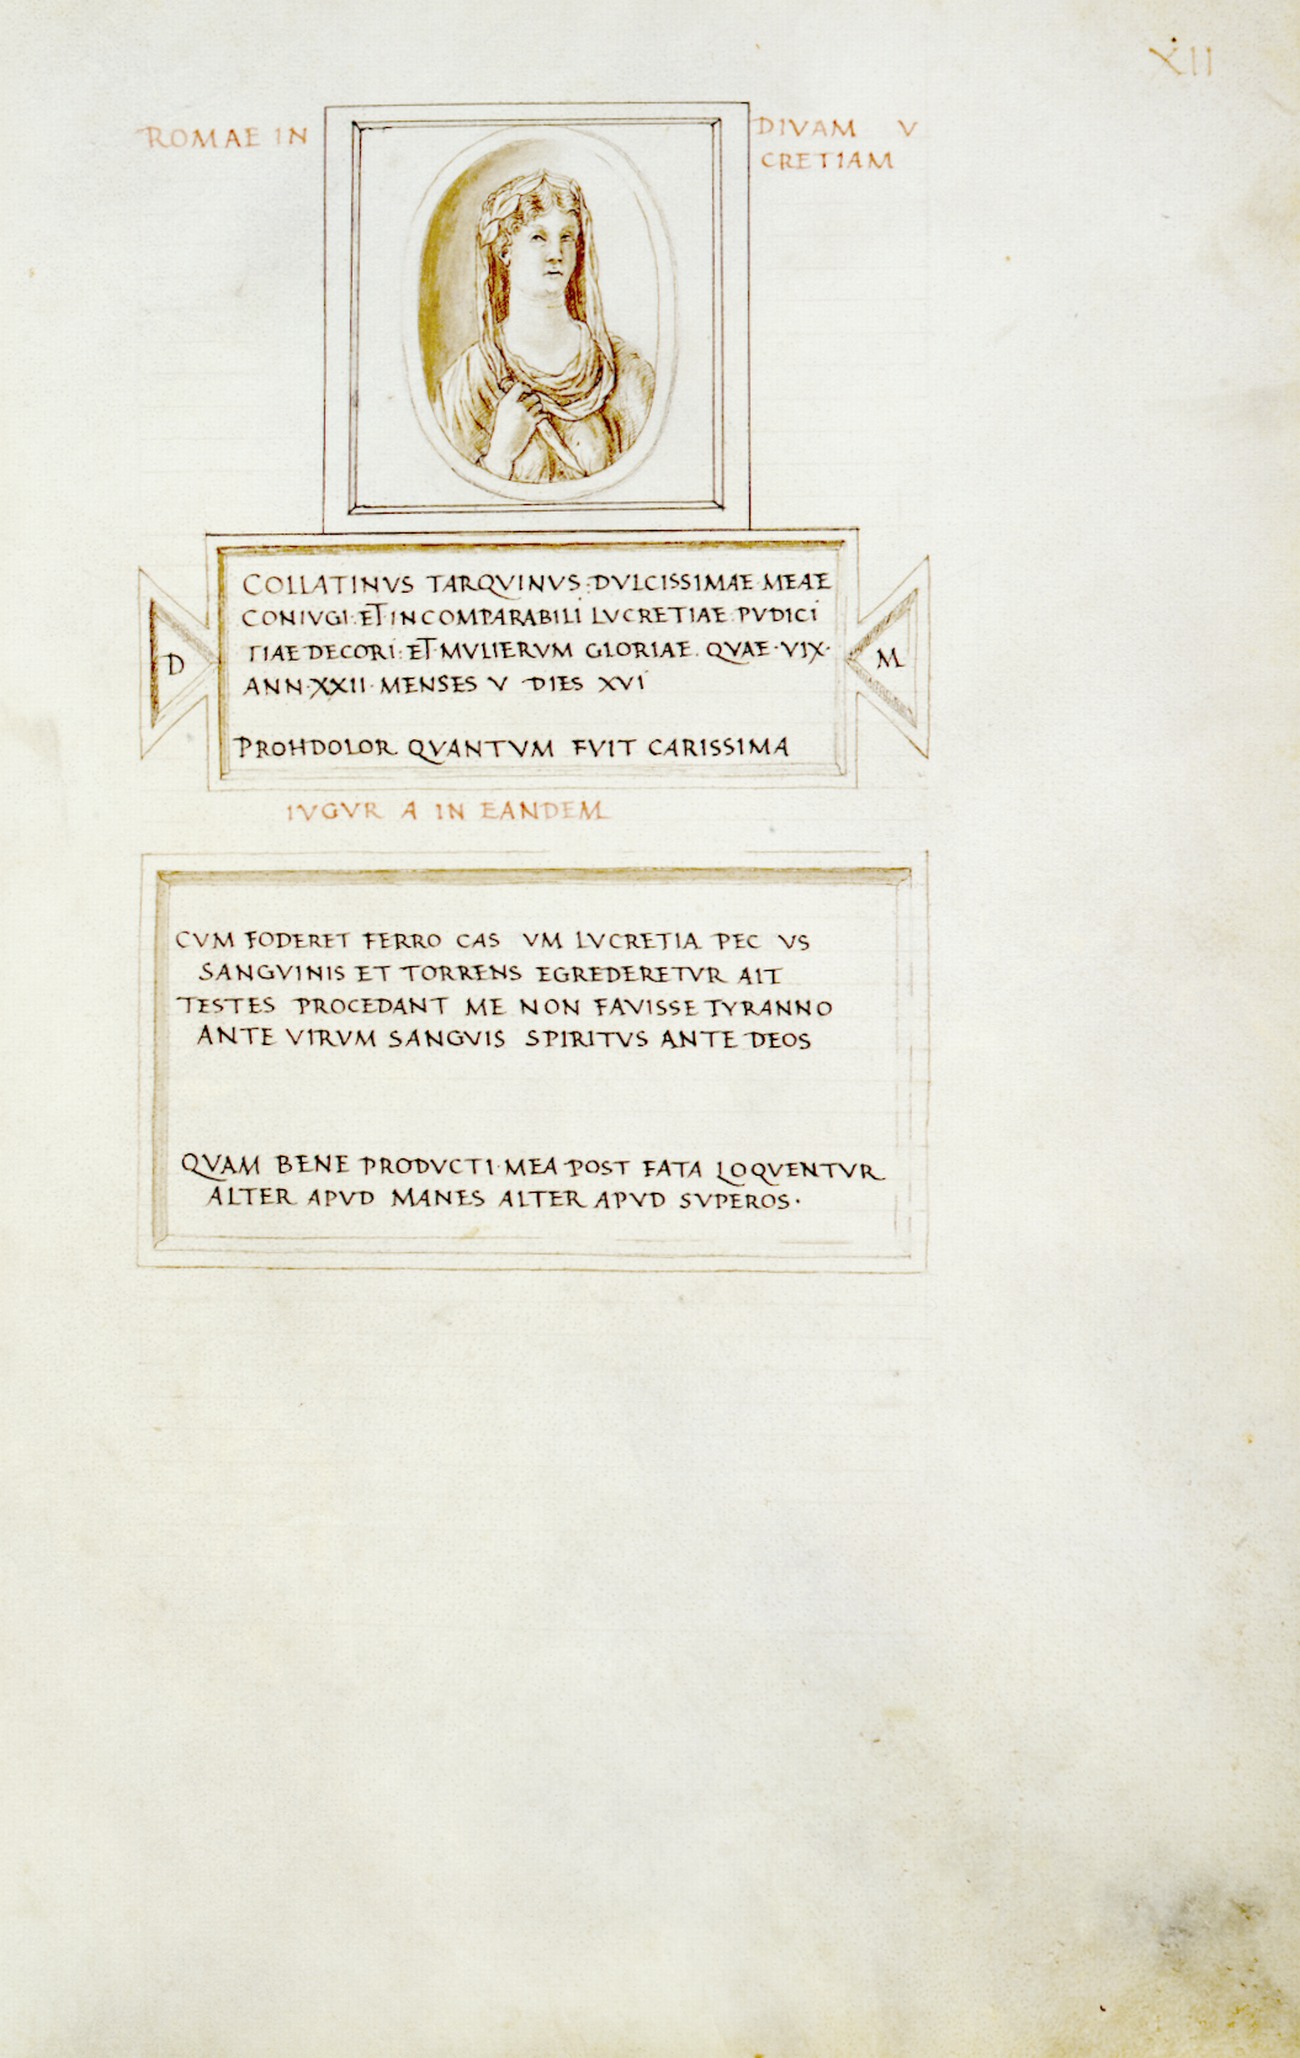 XII
ROMAE IN DIVAM V
CRETIAM
COLLATINVS TARQVINVS DVLCISSIMAE MEAE
CONIVGI ET INCOMPARABILI LVCRETIAE PVDICI
TIAE DECORI ET MVLIERVM GLORIAE QVAE VIX
ANN XXII MENSES V DIES XVI
D
M
PROHDOLOR QVANTVM FVIT CARISSIMA
IVGVR A IN EANDEM
CVM FODERET FERRO CAS VM LVCRETIA PEC VS
SANGVINIS ET TORRENS EGREDERETVR AIT
TESTES PROCEDANT ME NON FAVISSE TYRANNO
ANTE VIRVM SANGVIS SPIRITVS ANTE DEOS
QVAM BENE PRODVCTI MEA POST FATA LOQVENTVR
ALTER APVD MANES ALTER APVD SVPEROS